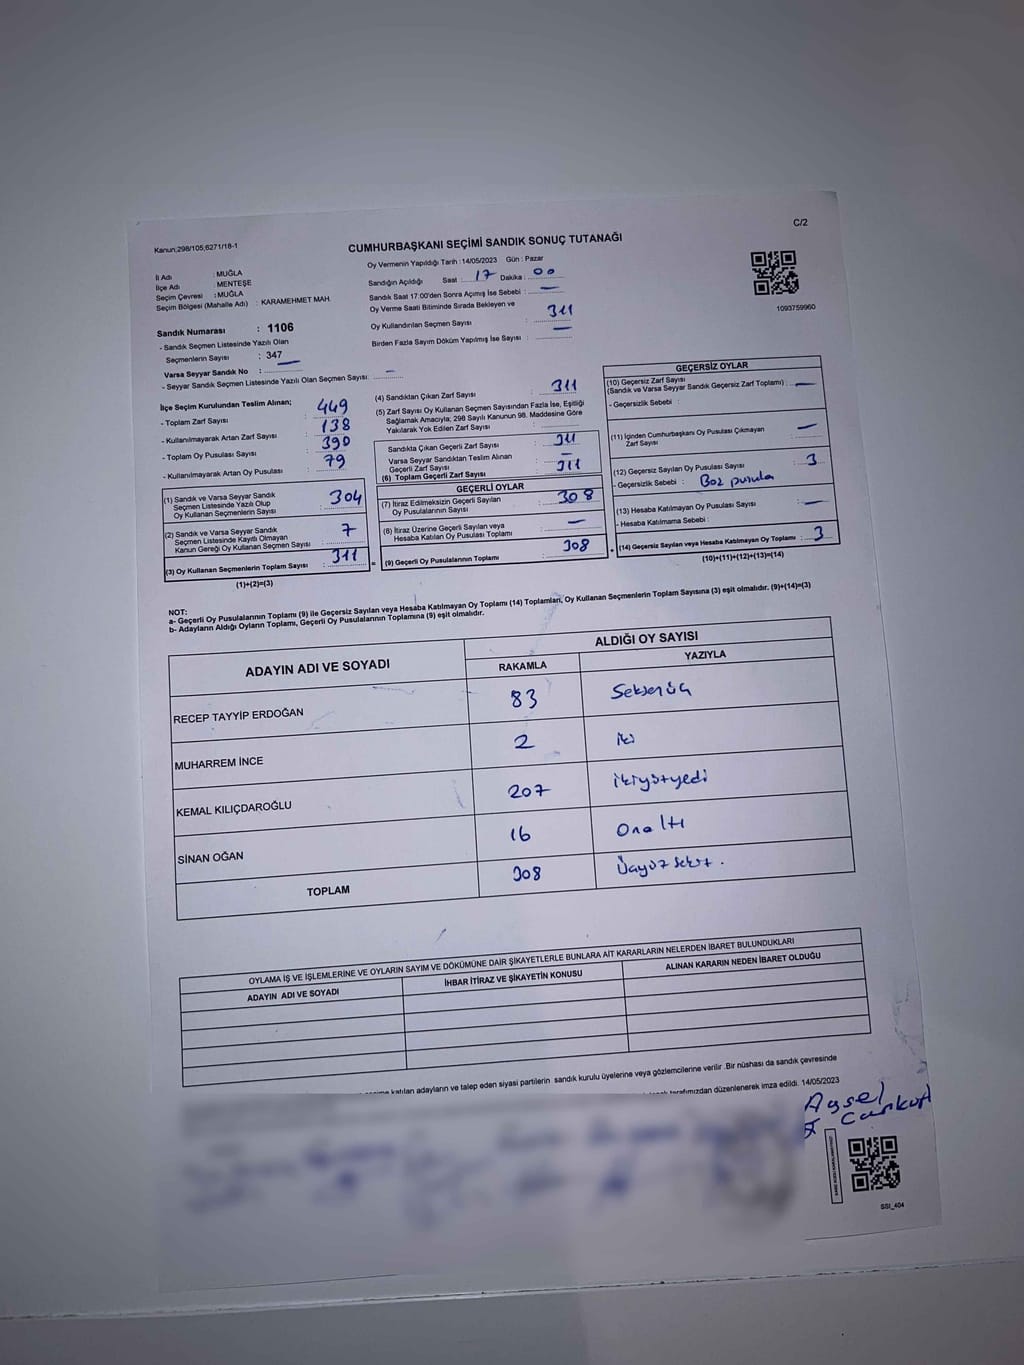 C/2
Kanun:298/105,6271/18-1
CUMHURBAŞKANI SEÇİMİ SANDIK SONUÇ TUTANAĞI
İl Adı : MUĞLA
İlçe Adı : MENTEŞE
Seçim Çevresi : MUĞLA
Seçim Bölgesi (Mahalle Adı) : KARAMEHMET MAH.
Oy Vermenin Yapıldığı Tarih : 14/05/2023 Gün : Pazar
Sandığın Açıldığı Saat : 17 Dakika : 00
Sandık Saat 17:00'den Sonra Açımış İse Sebebi : —
Oy Verme Saati Bitiminde Sırada Bekleyen ve
Oy Kullandırılan Seçmen Sayısı : 311
Birden Fazla Sayım Döküm Yapılmış İse Sayısı : —
1093759960
Sandık Numarası : 1106
- Sandık Seçmen Listesinde Yazılı Olan
Seçmenlerin Sayısı : 347
Varsa Seyyar Sandık No : —
- Seyyar Sandık Seçmen Listesinde Yazılı Olan Seçmen Sayısı: —
İlçe Seçim Kurulundan Teslim Alınan;
- Toplam Zarf Sayısı : 449
- Kullanılmayarak Artan Zarf Sayısı : 138
- Toplam Oy Pusulası Sayısı : 390
- Kullanılmayarak Artan Oy Pusulası : 79
(1) Sandık ve Varsa Seyyar Sandık
Seçmen Listesinde Yazılı Olup
Oy Kullanan Seçmenlerin Sayısı : 304
(2) Sandık ve Varsa Seyyar Sandık
Seçmen Listesinde Kayıtlı Olmayan
Kanun Gereği Oy Kullanan Seçmen Sayısı : 7
(3) Oy Kullanan Seçmenlerin Toplam Sayısı : 311
(1)+(2)=(3)
(4) Sandıktan Çıkan Zarf Sayısı : 311
(5) Zarf Sayısı Oy Kullanan Seçmen Sayısından Fazla İse, Eşitliği
Sağlamak Amacıyla; 298 Sayılı Kanunun 98. Maddesine Göre
Yakılarak Yok Edilen Zarf Sayısı :
Sandıkta Çıkan Geçerli Zarf Sayısı : 311
Varsa Seyyar Sandıktan Teslim Alınan
Geçerli Zarf Sayısı : —
(6) Toplam Geçerli Zarf Sayısı : 311
GEÇERLİ OYLAR
(7) İtiraz Edilmeksizin Geçerli Sayılan
Oy Pusulalarının Sayısı : 308
(8) İtiraz Üzerine Geçerli Sayılan veya
Hesaba Katılan Oy Pusulası Toplamı : —
(9) Geçerli Oy Pusulalarının Toplamı : 308
GEÇERSİZ OYLAR
(10) Geçersiz Zarf Sayısı
(Sandık ve Varsa Seyyar Sandık Geçersiz Zarf Toplamı) : —
- Geçersizlik Sebebi :
(11) İçinden Cumhurbaşkanı Oy Pusulası Çıkmayan
Zarf Sayısı : —
(12) Geçersiz Sayılan Oy Pusulası Sayısı : 3
- Geçersizlik Sebebi : Boz pusula
(13) Hesaba Katılmayan Oy Pusulası Sayısı : —
- Hesaba Katılmama Sebebi :
(14) Geçersiz Sayılan veya Hesaba Katılmayan Oy Toplamı : 3
(10)+(11)+(12)+(13)=(14)
NOT:
a- Geçerli Oy Pusulalarının Toplamı (9) ile Geçersiz Sayılan veya Hesaba Katılmayan Oy Toplamı (14) Toplamları, Oy Kullanan Seçmenlerin Toplam Sayısına (3) eşit olmalıdır. (9)+(14)=(3)
b- Adayların Aldığı Oyların Toplamı, Geçerli Oy Pusulalarının Toplamına (9) eşit olmalıdır.
ADAYIN ADI VE SOYADI
ALDIĞI OY SAYISI
RAKAMLA YAZIYLA
RECEP TAYYİP ERDOĞAN 83 Seksenüç
MUHARREM İNCE 2 iki
KEMAL KILIÇDAROĞLU 207 ikiyüzyedi
SİNAN OĞAN 16 Onaltı
TOPLAM 308 Üçyüzsekiz.
OYLAMA İŞ VE İŞLEMLERİNE VE OYLARIN SAYIM VE DÖKÜMÜNE DAİR ŞİKAYETLERLE BUNLARA AİT KARARLARIN NELERDEN İBARET BULUNDUKLARI
ADAYIN ADI VE SOYADI İHBAR İTİRAZ VE ŞİKAYETİN KONUSU ALINAN KARARIN NEDEN İBARET OLDUĞU
katılan adayların ve talep eden siyasi partilerin sandık kurulu üyelerine veya gözlemcilerine verilir .Bir nüshası da sandık çevresinde
tarafımızdan düzenlenerek imza edildi. 14/05/2023
Aysel
Cankurt
SSI_404